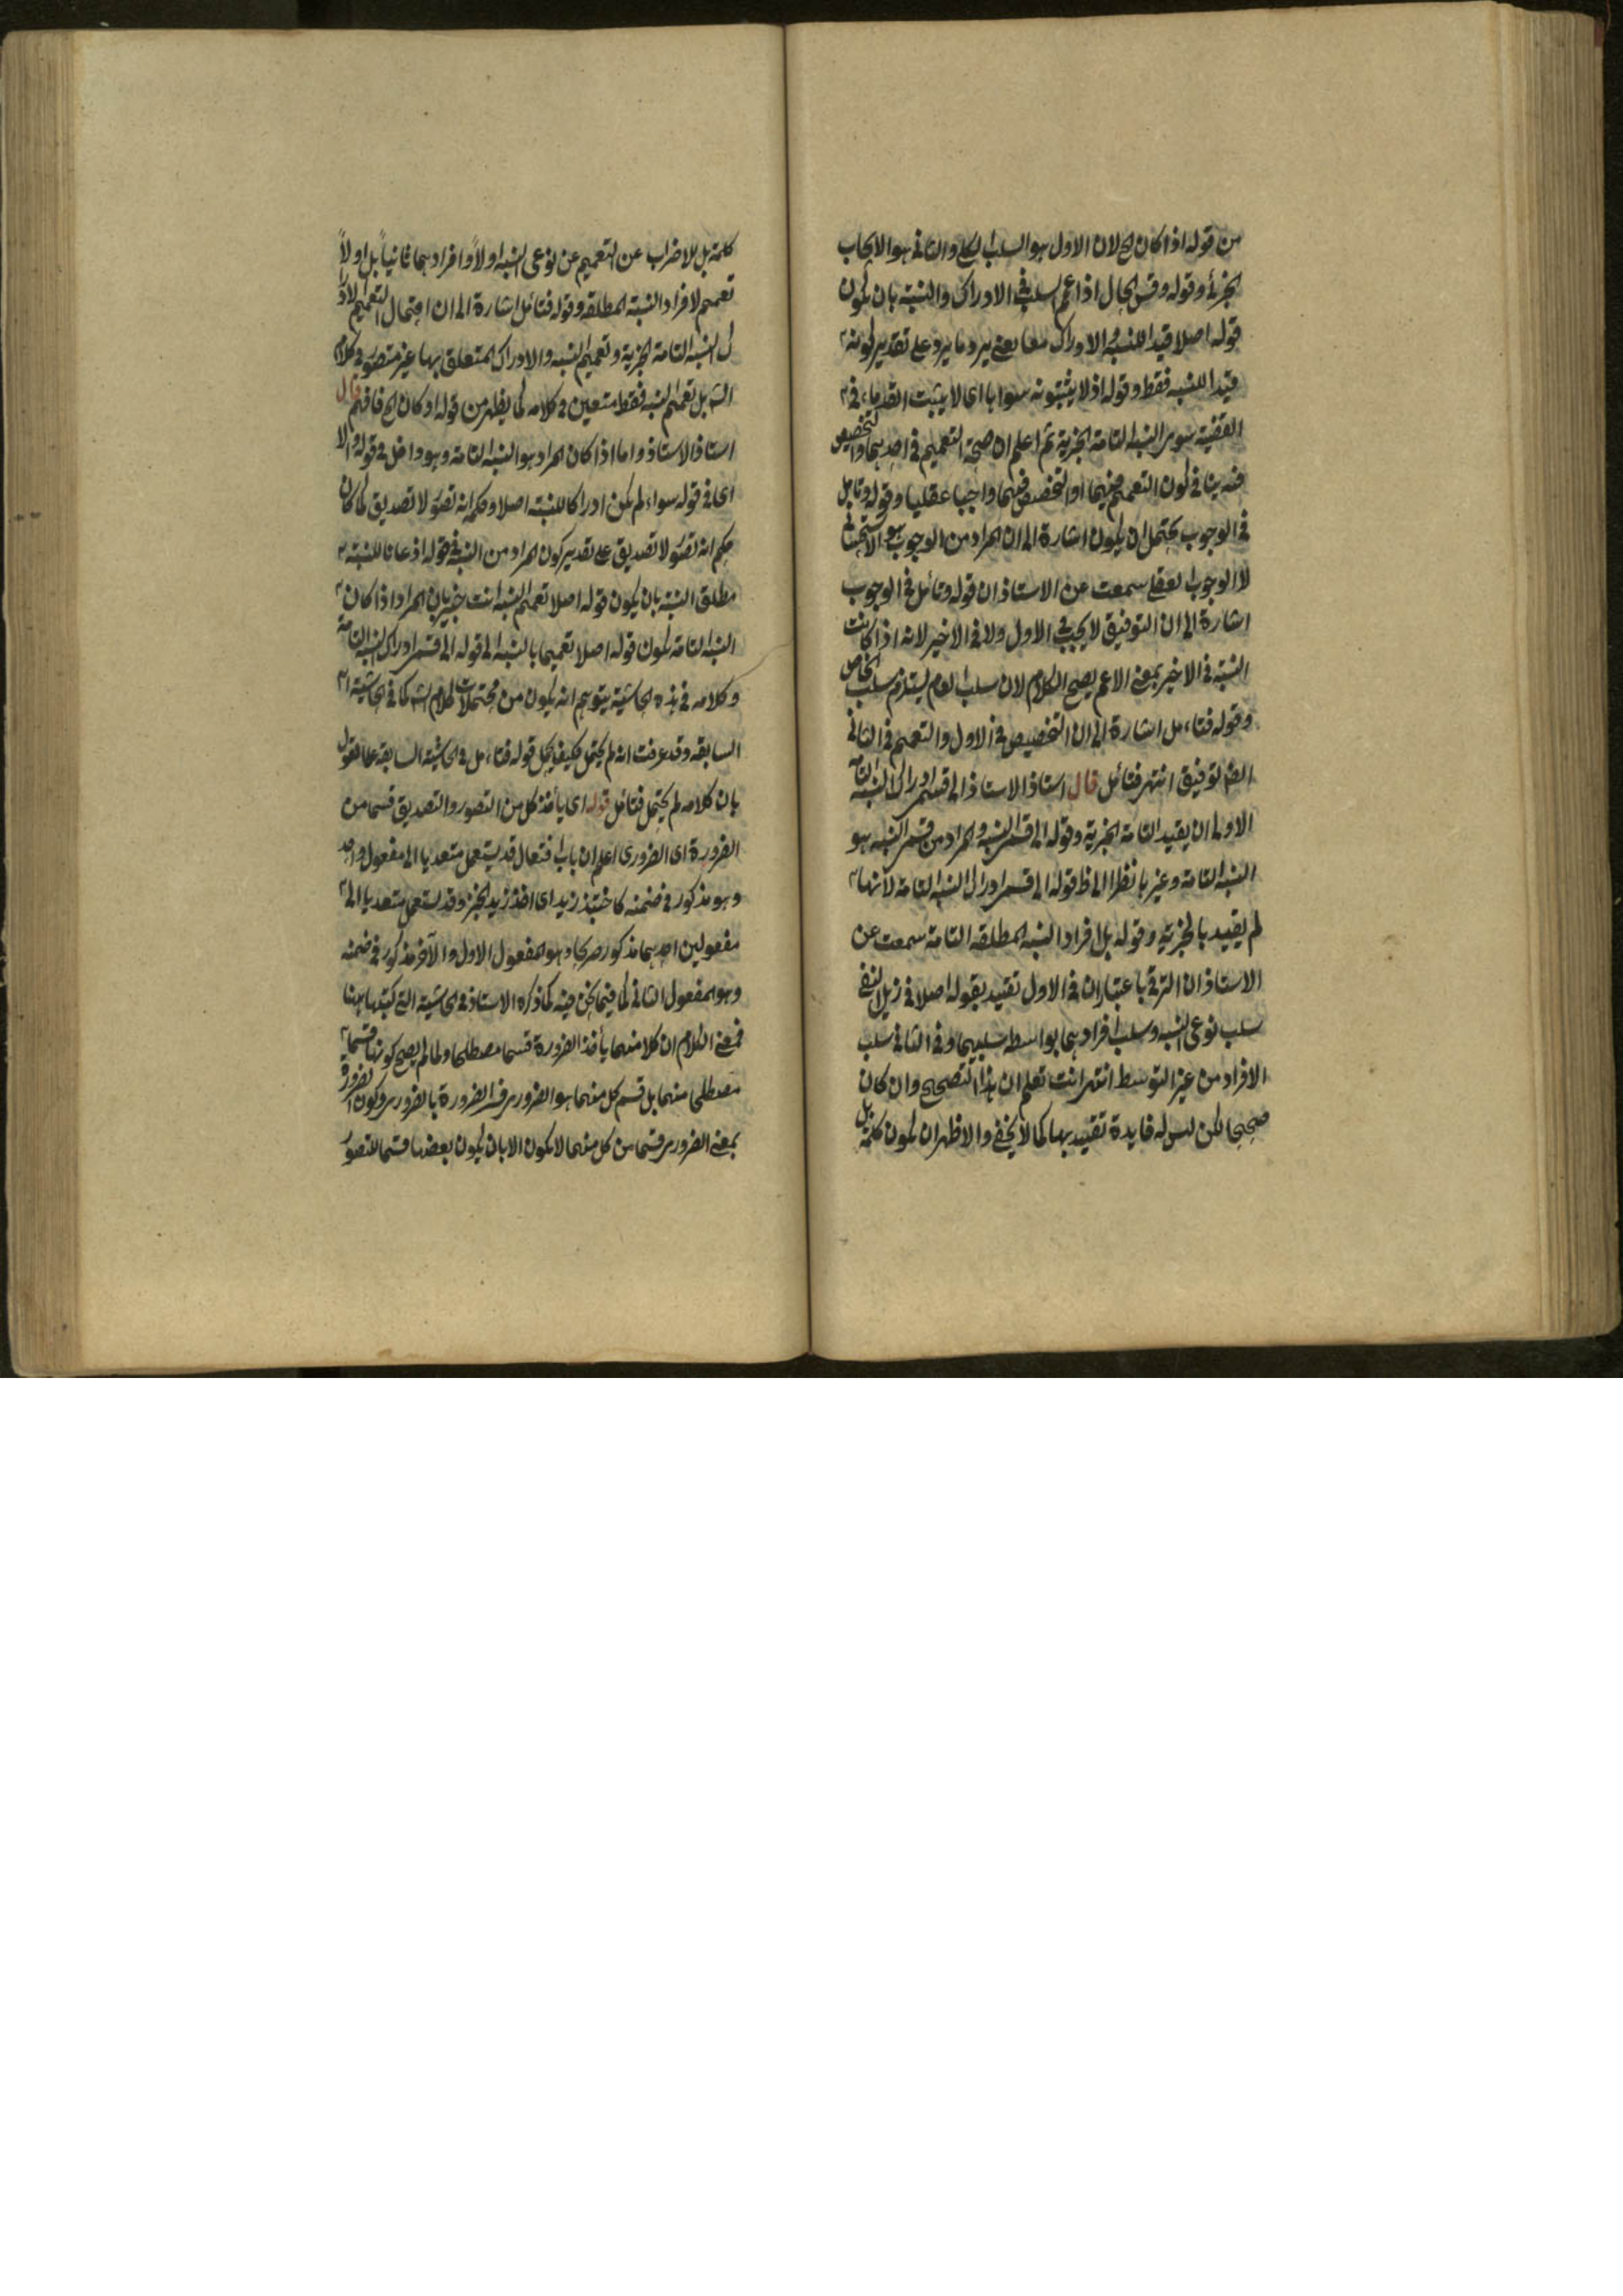 من قوله اذا كان الخ لان الاول هو السلب الكلي والثاني هو الايجاب
الجزئي وقوله وقس الحال اذا عم السلب في الادراك والنسبة بان يكون
قوله اصلا قيدا للنسبة والادراك معا يعني يرد ما يرد على تقدير كونه
قيدا للنسبة فقط وقوله اذ لا يثبتونه سوابا اى لا يثبت القدماء في
القضية سوى النسبة التامة الخبرية ثم اعلم ان صحة التعميم في احديهما والتخصيص
فيه ينافي كون التعميم فيهما او التخصيص فيهما واجبا عقليا وقوله وتأمل
في الوجوب يحتمل ان يكون اشارة الى ان المراد من الوجوب هو الاستحساني
لا الوجوب العقلي سمعت عن الاستاذ ان قوله وتأمل في الوجوب
اشارة الى ان التوفيق لا يجب في الاول ولا في الاخير لانه اذا كانت
النسبة في الاخير بمعنى الاعم يصح الكلام لان سلب العام يستلزم سلب الخاص
وقوله فتاءمل اشارة الى ان التخصيص في الاول والتعميم في الثاني
ايضا توفيق انتهى فتأمل قال استاذ الاستاذ الى قسمي ادراك النسبة التامة
الاولى ان يقيد التامة الخبرية وقوله الى قسمي النسبة والمراد من قسمي النسبة هو
النسبة التامة وغيرها نظرا الى ظ قوله الى قسمي ادراك النسبة التامة لانها
لم يقيد بالخبرية وقوله بل افراد النسبة المطلقة التامة سمعت عن
الاستاذ ان الترقي باعتبار ان في الاول تقييد بقوله اصلا في ذيل النفي
سلب نوعى النسبة وسلب افرادهما بواسطة سلبيهما وفي الثاني سلب
الافراد من غير التوسط انتهى انت تعلم ان هذا التصحيح وان كان
صحيحا لكن ليس له فايدة تقييد بها كما لا يخفى والاظهر ان يكون كلمة بل
كلمة بل للاضراب عن التعميم عن نوعى النسبة اولاً وافرادهما ثانياً بل اولاً
تعميم لافراد النسبة المطلقة وقوله فتأمل اشارة الى ان احتمال التعميم لادرا
ك النسبة التامة الخبرية وتعميم النسبة والادراك المتعلق بها غير متصور في كلام
الش بل تعميم النسبة فقط متعين في كلامه كما يظهر من قوله او كان الخ فافهم قال
استاذ الاستاذ واما اذا كان المراد هو النسبة التامة وهو داخل في قوله والا
اى في قوله سواء لم يكن ادراكا للنسبة اصلا وحكمه انه تصور لا تصديق كما كان
حكم انه تصور لا تصديق على تقدير كون المراد من النسبة في قوله اذعانا للنسبة
مطلق النسبة بان يكون قوله اصلا تعميم النسبة انت خبير بان المراد اذا كان
النسبة التامة يكون قوله اصلا تعميما بالنسبة الى قوله الى قسمي ادراك النسبة التامة
وكلامه في هذه الحاشية يتوهم انه يكون من محتملات كلام الش كما في الحاشية
السابقة وقد عرفت انه لم يحتمل فكيف يحمل قوله فتاءمل في الحاشية السابقة على القول
بان كلامه لم يحتمل فتأمل قوله اى يأخذ كل من التصور والتصديق قسما من
الضرورة اى الضرورى اعلم ان باب افتعال قد يستعمل متعديا الى مفعول واحد
وهو مذكور في ضمنه كاختبز زيد اى اخذ زيد الخبز وقد يستعمل متعديا الى
مفعولين احديهما مذكور صريحا وهو المفعول الاول والآخر مذكور في ضمنه
وهو المفعول الثاني كما فيما نحن فيه كما ذكره الاستاذ في الحاشية التي كتبتها ههنا
فمعنى الكلام ان كلا منهما يأخذ الضرورة قسما مصطلحا ولما لم يصح كونها قسما
مصطلحا منهما بل قسم كل منهما هو الضرورى فسر الضرورة بالضرورى وكون الضرورة
بمعنى الضرورى قسما من كل منهما لا يكون الا بان يكون بعضها قسما للتصور